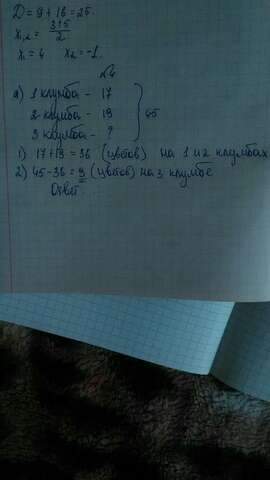 D = 9 + 16 = 25.
x₁,₂ = 3±5/2
x₁ = 4 x₂ = -1.
№4
а) 1 клумба - 17
2 клумба - 19 } 45
3 клумба - ?
1) 17+19 = 36 (цветов) на 1 и 2 клумбах
2) 45-36 = 9 (цветов) на 3 клумбе
Ответ: